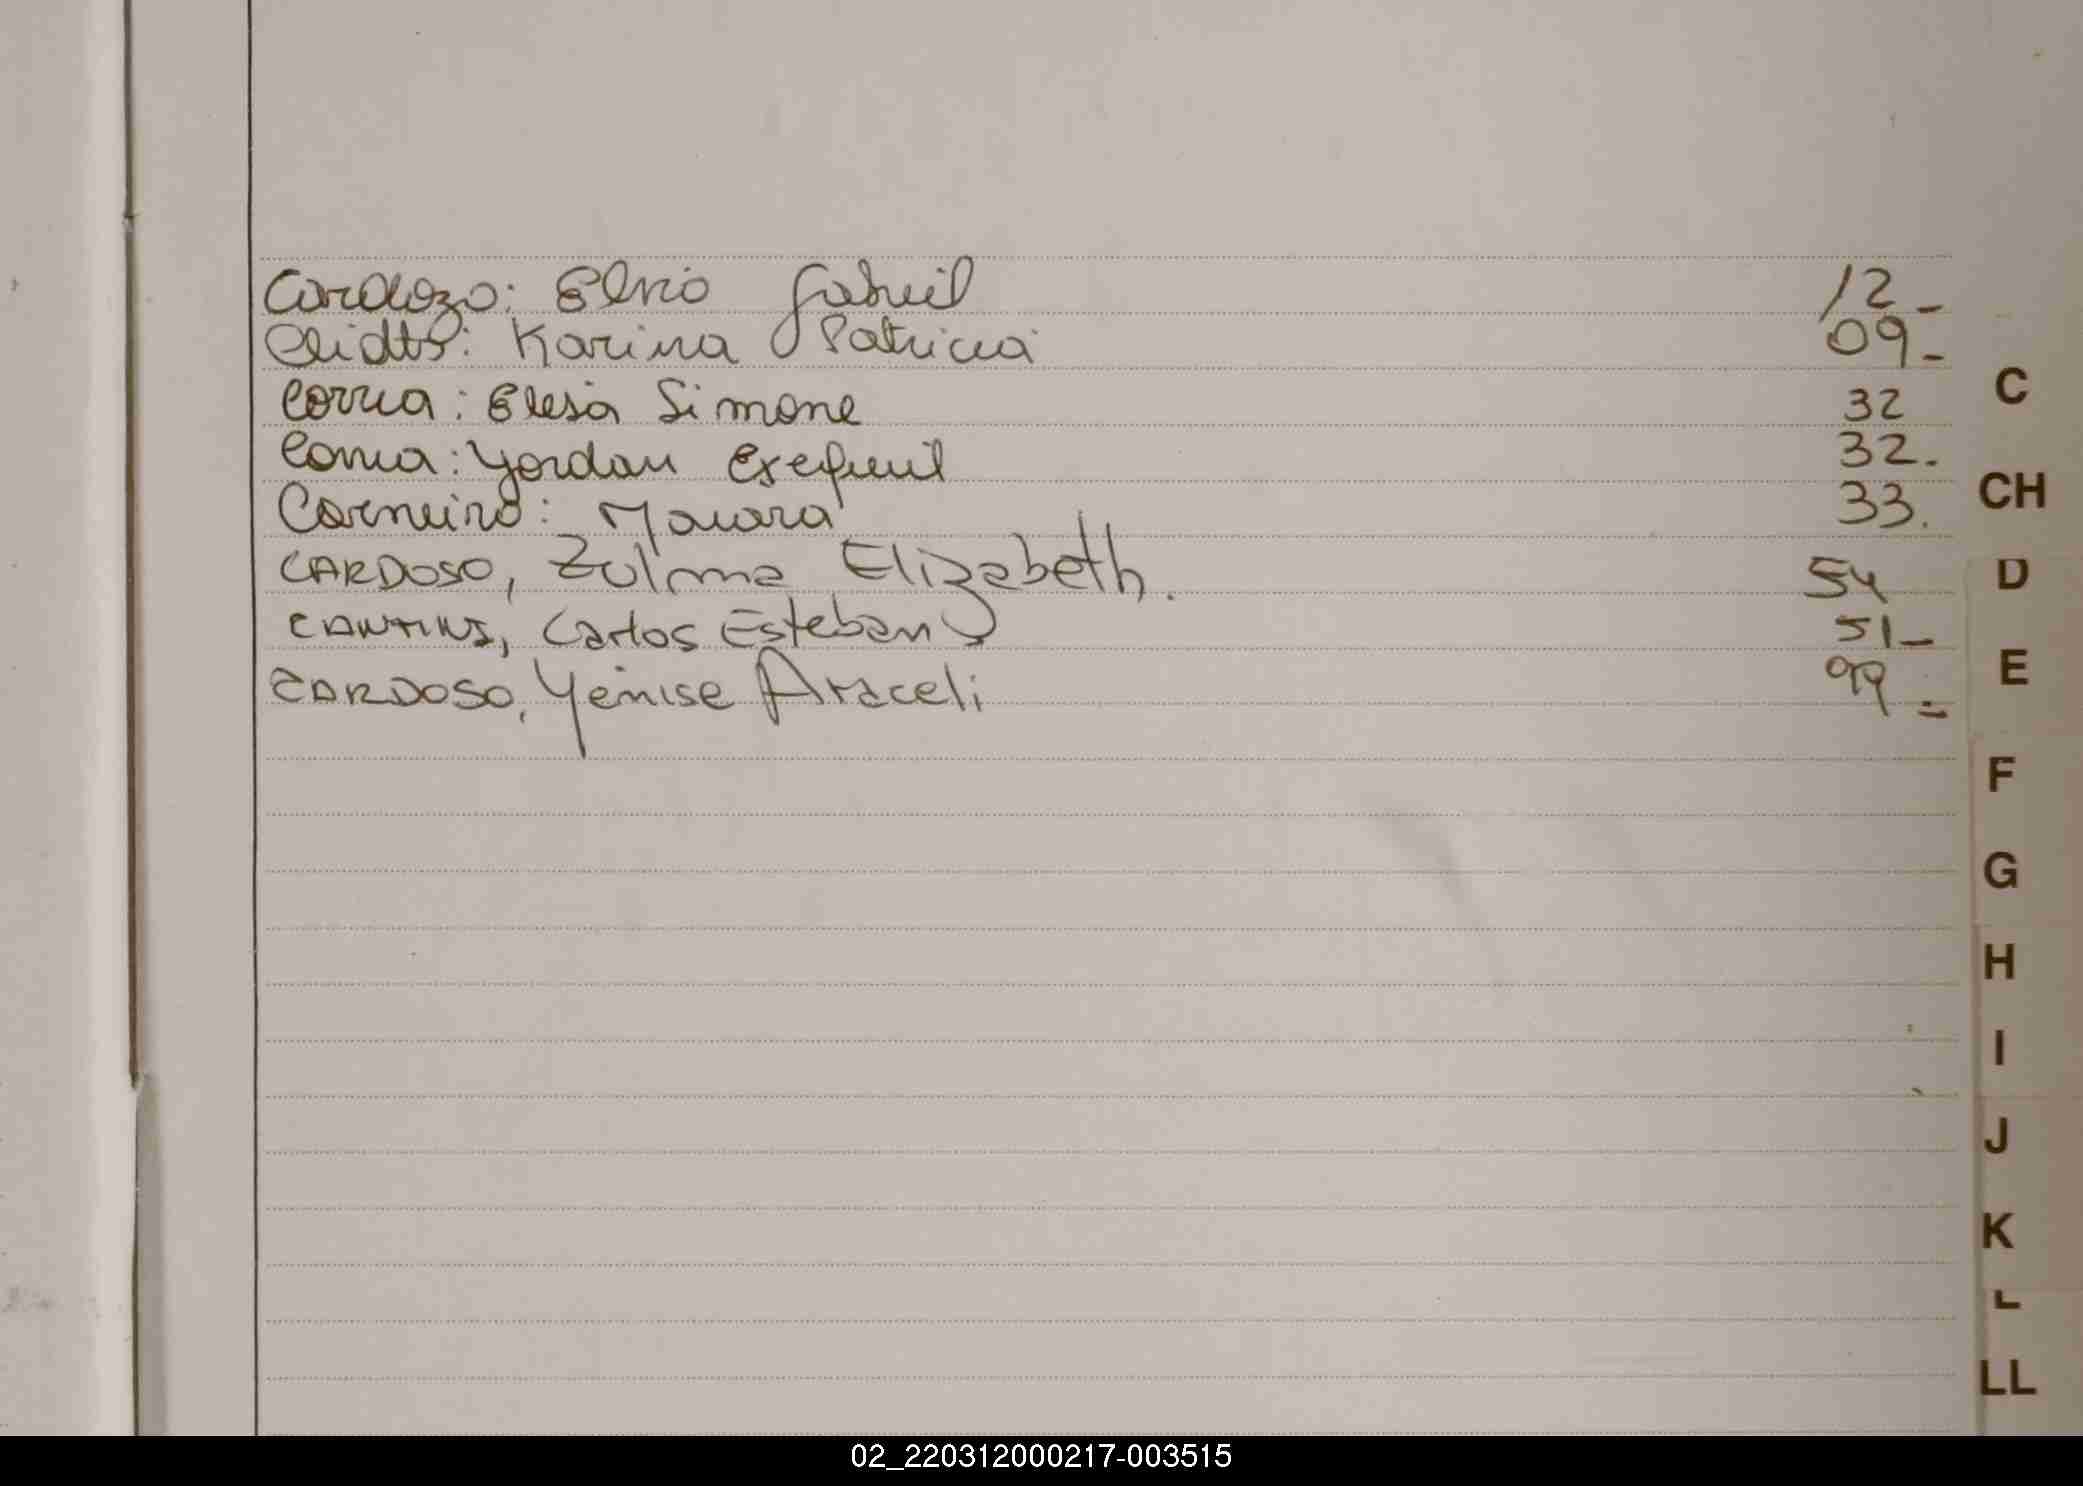 Cardozo: Elvio Gabriel 12_
Karina Patricia 09_
Correa: Elesa Simone 32
Correa: Yordan Exequiel 32.
Carneiro: Maiara 33.
CARDOSO, Zulma Elizabeth. 54
Carlos Esteban 51_
CARDOSO, Yenise Araceli 99_
C
CH
D
E
F
G
H
I
J
K
L
LL
02_220312000217-003515